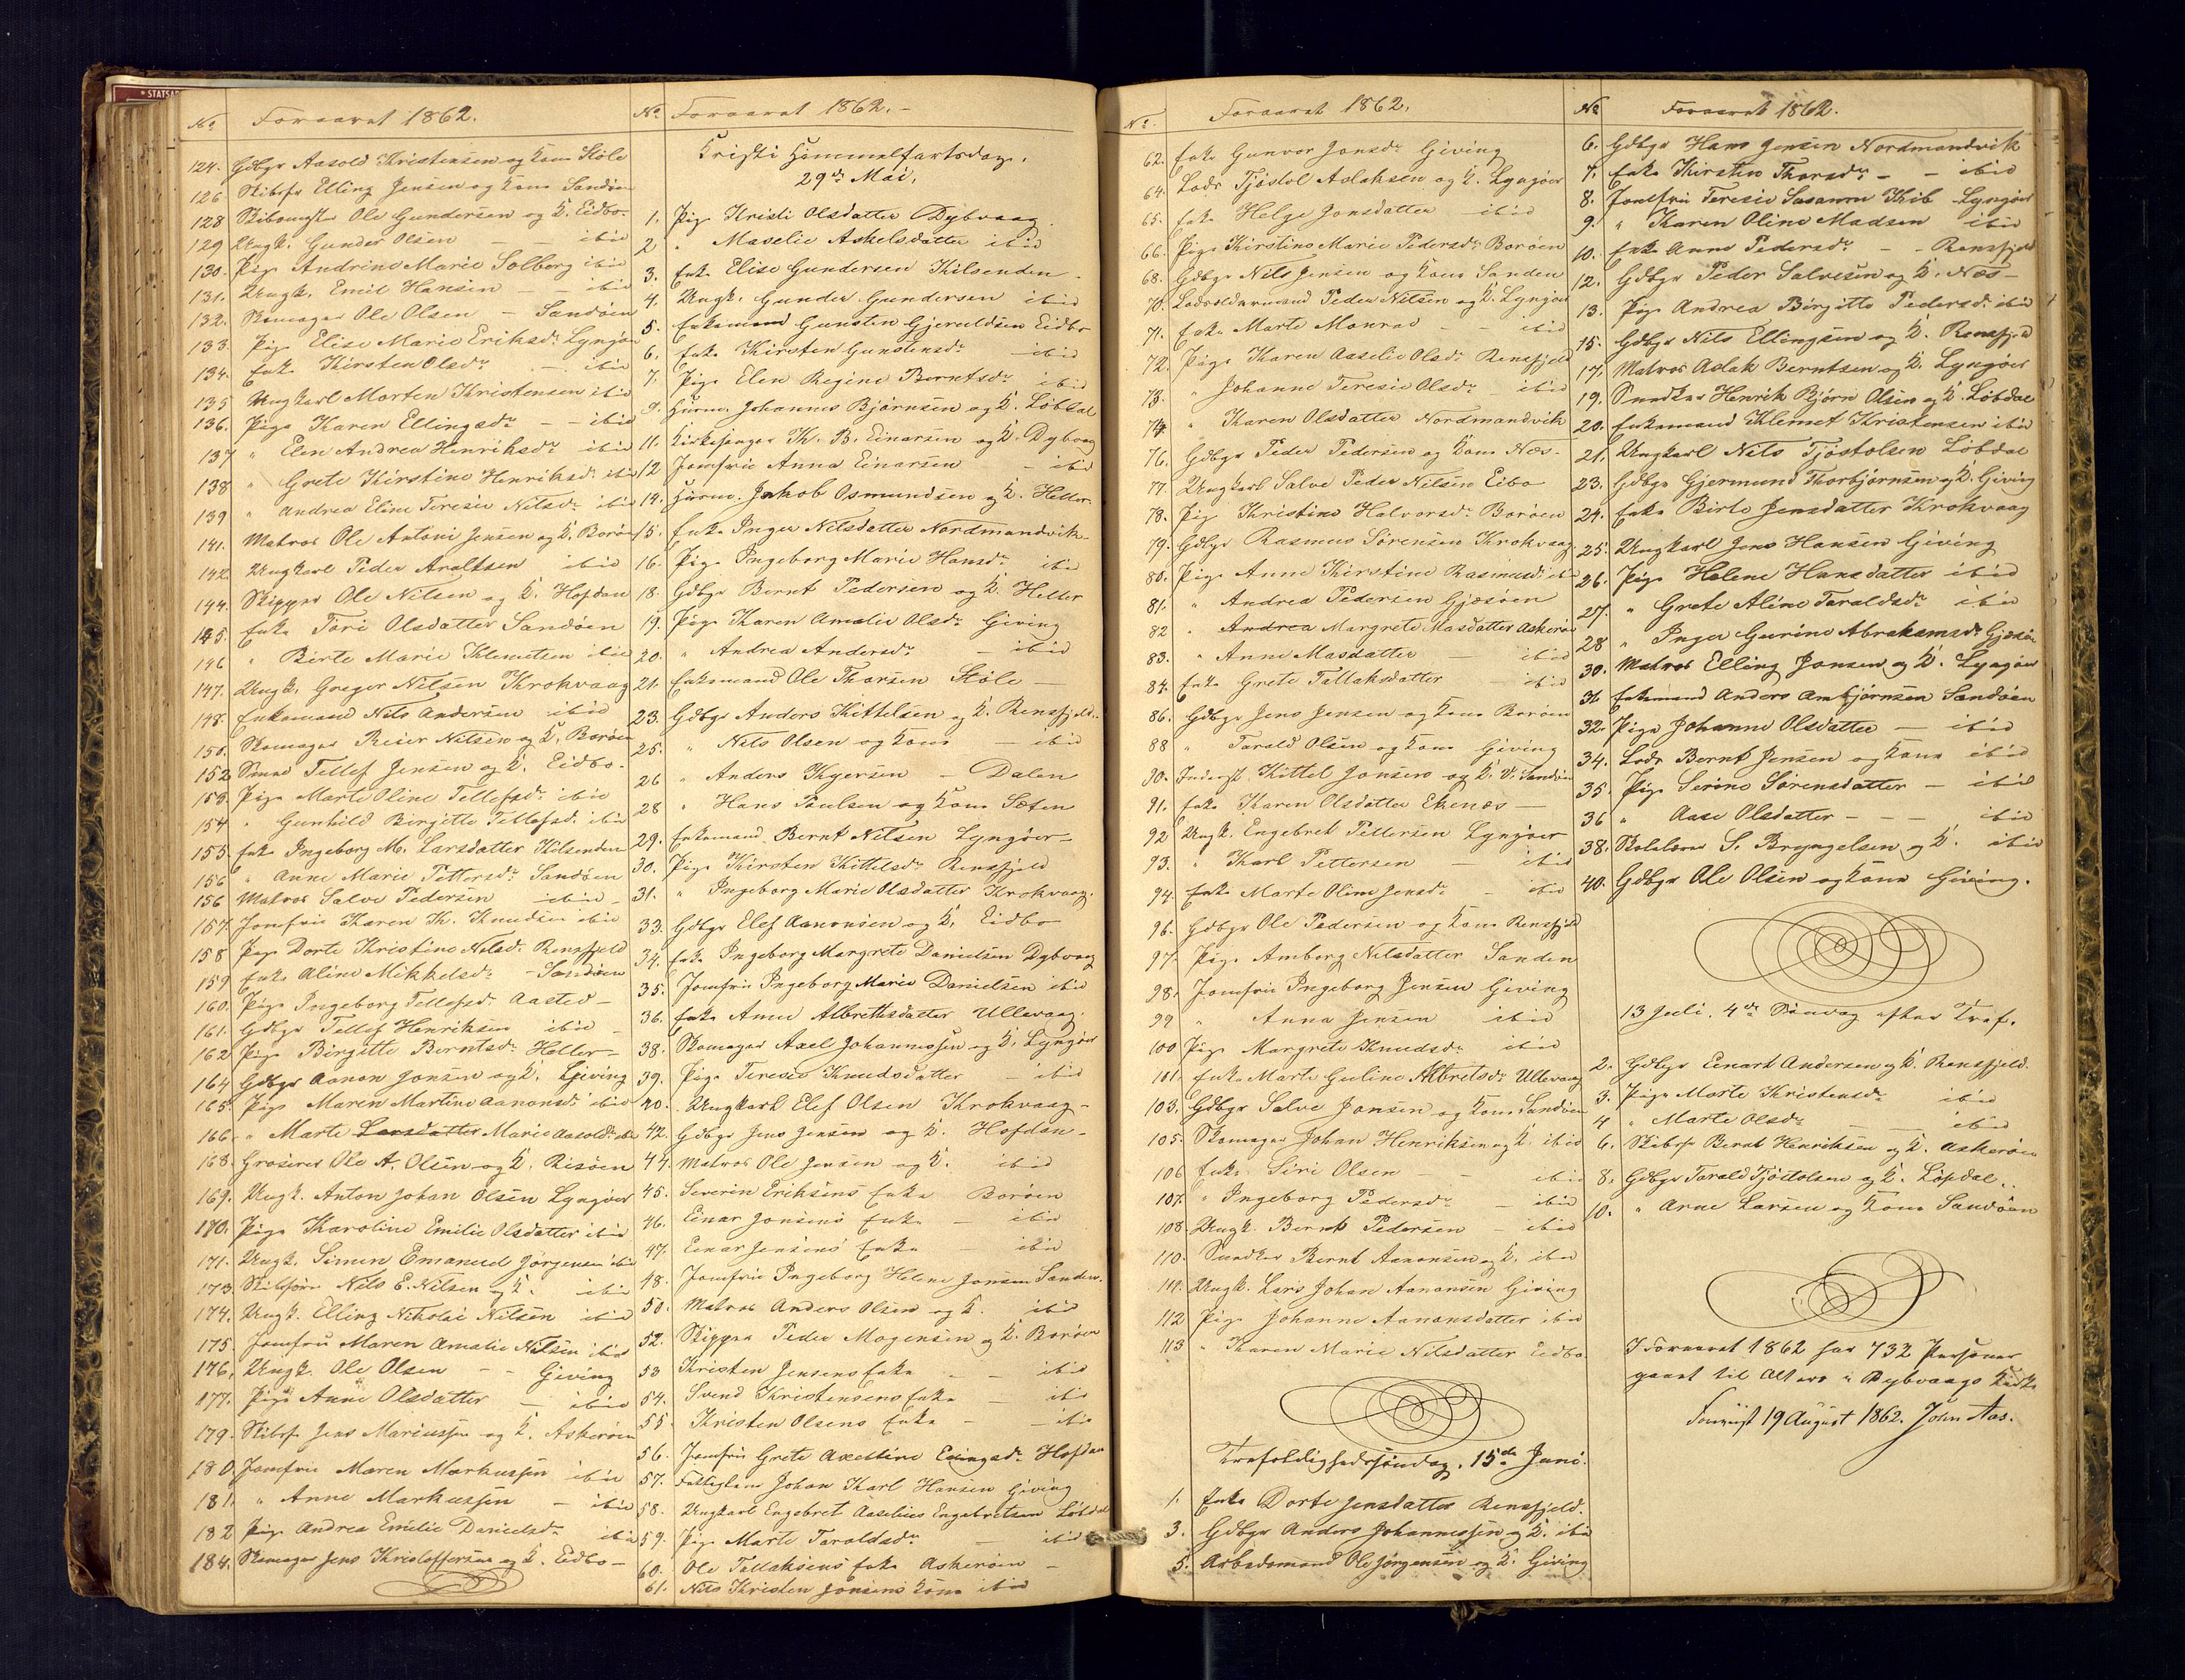 * STATSAR
No Foraaret 1862.
124. Gdbgr Aasold Kristensen og Kone Støle
126 Skibsfr Elling Jensen og Kone Sandøen
128 Skibsmgler Ole Gundersen og K. Eidbo.
129 Ungk. Gunder Olsen — — ibid
130. Pige Andrine Marie Solberg ibid
131. Ungk. Emil Hansen — — ibid
132. Skomager Ole Olsen — Sandøen
133. Pige Elise Marie Eriksdr Lyngøer
134. Enke Kirsten Olsdr — ibid
135 Ungkarl Morten Kristensen ibid
136. Pige Karen Ellingsdr — — ibid
137 " Elen Andrea Henriksdr ibid
138 " Grete Kirstine Henriksdr ibid
139 " Andrea Eline Teresie Nilsdr ibid
141. Matros Ole Antoni Jensen og K. Borøen
142. Ungkarl Peder Araltsen ibid
144. Skipper Ole Nilsen og K. Hofdan
145. Enke Tori Olsdatter Sandøen
146 " Birte Marie Klemetsen ibid
147. Ungk. Greger Nilsen Krokvaag
148. Enkemand Nils Andersen ibid
150. Skomager Reier Nilsen og K. Borøen
152 Smed Tellef Jensen og K. Eidbo.
153. Pige Marte Oline Tellefsd. ibid
154 " Gunhild Birgitte Tellefsd. ibid
155. Enke Ingeborg M. Larsdatter Kilsenden
156 " Anne Marie Pettersdr Sandøen
156 Matros Salve Pedersen ibid
157. Jomfru Karen K. Knudsen ibid
158 Pige Dorte Kristine Nilsd. Rensfjeld
159 Enke Aline Mikkelsdr — Sandøen
160. Pige Ingeborg Tellefsdr Aasted —
161. Gdbgr Tellef Henriksen ibid —
162 Pige Birgitte Berntsdr Heller —
164 Gdbgr Aanon Jonsen og K. Giving
165. Pige Maren Martine Aanonsd. ibid
166 " Marte Larsdatter Marie Aasoldsdr ibid
168. Groserer Ole A. Olsen og K. Risøen
169. Ungk. Anton Johan Olsen Lyngøer
170. Pige Karoline Emilie Olsdatter ibid
171. Ungk. Simen Emanuel Jørgensen ibid
173 Skibsfører Nils E. Nilsen og K. ibid
174. Ungk. Elling Nikolai Nilsen ibid
175. Jomfru Maren Amalie Nilsen ibid
176. Ungk. Ole Olsen — — Giving
177. Pige Anne Olsdatter — ibid
179. Skibsf. Jens Mariussen og K. Askerøen
180. Jomfru Maren Markussen ibid
181. " Anne Markussen — ibid
182 Pige Andrea Emilie Danielsdr ibid
184. Skomager Jens Kristoffersen og K. Eidbo —
No Foraaret 1862. —
Kristi Himmelfartsdag.
29de Mai.
1. Pige Kristi Olsdatter Dybvaag
2 " Maselie Askelsdatter ibid
3. Enke Elise Gundersen Kilsenden
4. Ungk. Gunder Gundersen ibid
5. Enkemand Gunsten Gjeruldsen Eidbo
6. Enke Kirsten Gunstensdr — ibid
7. Pige Elen Regine Berntsdr ibid
9. Husm. Johannes Bjørnsen og K. Løbdal
11. Kirkesanger Th. B. Einarsen og K. Dybvaag
12 Jomfru Anna Einarsen — ibid
14. Husm. Jakob Osmundsen og K. Heller
15. Enke Inger Nilsdatter Nordmandvik
16. Pige Ingeborg Marie Hansdr ibid
18. Gdbgr Bernt Pedersen og K. Heller
19. Pige Karen Amalie Olsdr Giving
20. " Andrea Andersdr — ibid
21. Enkemand Ole Thorsen Støle —
23. Gdbgr Anders Kittelsen og K. Rensfjeld.
25. " Nils Olsen og Kone — ibid
26 " Anders Kgersen — Dalen
28 " Hans Paulsen og Kone Sæten
29. Enkemand Bernt Nilsen Lyngøer —
30. Pige Kirsten Kittelsdr Rensfjeld
31. " Ingeborg Marie Olsdatter Krokvaag.
33. Gdbgr Elef Aanonsen og K. Eidbo
34. Enke Ingeborg Margrete Danielsen Dybvaag
35. Jomfru Ingeborg Marie Danielsen ibid
36. Enke Anne Albretsdatter Ullevaag.
38. Skomager Axel Johannessen og K. Lyngøer
39. Pige Teresie Knudsdatter — ibid
40. Ungkarl Elef Olsen Krokvaag —
42. Gdbgr Jens Jensen og K. Hofdan —
44. Matros Ole Jensen og K. ibid
45. Severin Eriksens Enke Borøen
46. Einar Jonsens Enke — ibid
47. Einar Jensens Enke — ibid
48. Jomfru Ingeborg Helene Jonsen Sanden.
50. Matros Anders Olsen og K. ibid
52. Skipper Peder Mogensen og K. Borøen
53 Kristen Jensens Enke — — ibid
54. Svend Kristensens Enke — ibid
55. Kristen Olsens Enke — — ibid
56. Jomfru Grete Axeline Eningsdr Hofdan
57. Fattiglem Johan Karl Hansen Giving
58. Ungkarl Engebret Aaselius Engebretsen Løbdal
59. Pige Marte Taraldsdr — ibid
60. Ole Tellaksens Enke Askerøen —
61. Nils Kristen Jonsens Kone ibid
No. Foraaret 1862.
62. Enke Gunvor Jonsdr Giving
64. Lods Tjøstol Aslaksen og K. Lyngøer
65. Enke Helge Jonsdatter ibid
66. Pige Kirstine Marie Pedersdr Borøen
68. Gdbgr Nils Jensen og Kone Sanden
70. Lodsoldermand Peder Nilsen og K. Lyngøer
71. Enke Marte Monrad — — ibid
72. Pige Karen Aaselie Olsdr Rensfjeld
73. " Johanne Teresie Olsdr ibid
74. " Karen Olsdatter Nordmandvik
76. Gdbgr Peder Pedersen og Kone Næs —
77. Ungkarl Salve Peder Nilsen Eibo
78. Pige Kristine Halvorsdr Borøen
79. Gdbgr Rasmus Sørensen Krokvaag
80. Pige Anne Kirstine Rasmusdr ibid
81. " Andrea Pedersen Gjesøen
82 " Andrea Margrete Masdatter Askerøen
83. " Anne Masdatter — ibid
84. Enke Grete Tallaksdatter — ibid
86. Gdbgr Jens Jensen og Kone Borøen
88 " Tarald Olsen og Kone Giving
90. Inderst. Kittel Jonsens og K. V. Sandøen
91. Enke Karen Olsdatter Ekenæs —
92 Ungk. Engebret Pettersen Lyngøer —
93. " Karl Pettersen — ibid
94. Enke Marte Oline Jensdr — ibid
96. Gdbgr Ole Pedersen og Kone Rensfjeld
97. Pige Amborg Nilsdatter Sanden
98. Jomfru Ingeborg Jensen Giving
99 " Anna Jensen ibid
100 Pige Margrete Knudsdr ibid
101. Enke Marte Guline Albretsdr Ullevaag
103. Gdbgr Salve Jansen og Kone Sandøen
105. Skomager Johan Henriksen og K. ibid
106 Enke Siri Olsen — — ibid
107. " Ingeborg Pedersdr — ibid
108 Ungk. Bernt Pedersen — ibid
110. Snedker Bernt Aanonsen og K. ibid
111. Ungk. Lars Johan Aanonsen Giving
112 Pige Johanne Aanonsdatter ibid
113 " Karen Marie Nilsdatter Eidbo.
Trefoldighedssøndag. 15de Juni.
1. Enke Dorte Jensdatter Rensfjeld.
3. Gdbgr Anders Johannessen og K. ibid
5. Arbeidsmand Ole Jørgensen og K. Giving
No Foraaret 1862.
6. Gdbgr Hans Jensen Nordmandvik
7. Enke Kirsten Thorsdr — — ibid
8. Jomfru Teresie Susanne Kib Lyngøer
9. " Karen Oline Madsen ibid
10. Enke Anne Pedersdr — — Rensfjeld
12. Gdbgr Peder Salvesen og K. Næs —
13. Pige Andrea Birgitte Pedersd. ibid
15. Gdbgr Nils Ellingsen og K. Rensfjeld
17. Matros Aslak Berntsen og K. Lyngøer
19. Snedker Henrik Bjørn Olsen og K. Løbdal
20. Enkemand Klemet Kristensen ibid
21. Ungkarl Nils Tjøstolsen Løbdal
23. Gdbgr Gjermund Thorbjørnsen og K. Giving
24. Enke Birte Jensdatter Krokvaag
25. Ungkarl Jens Hansen Giving
26. Pige Helene Hansdatter ibid
27. " Grete Aline Taraldsdr ibid
28 " Inger Gurine Abrahamsdr Gjesøen
30. Matros Elling Jansen og K. Lyngøer
31 Enkemand Anders Ambjørnsen Sandøen
32. Pige Johanne Olsdatter — ibid
34. Lods Bernt Jensen og Kone ibid
35. Pige Serine Sørensdatter — ibid
36 " Aase Olsdatter — — — ibid
38. Skolelærer S. Bryngelsen og K. ibid
40. Gdbgr Ole Olsen og Kone Giving.
13 Juli. 4de Søndag efter Tref.
2. Gdbgr Einart Andersen og K. Rensfjeld.
3. Pige Marte Kristensdr ibid
4 " Marte Olsdr — — ibid
6. Skibsfr Bernt Henriksen og K. Askerøen
8. Gdbgr Tarald Tjøstolsen og K. Løpdal..
10. " Arne Larsen og Kone Sandøen
I Foraaret 1862 har 732 Personer
gaaet til Alters i Dybvaags Kirke
19 August 1862. John Aas.